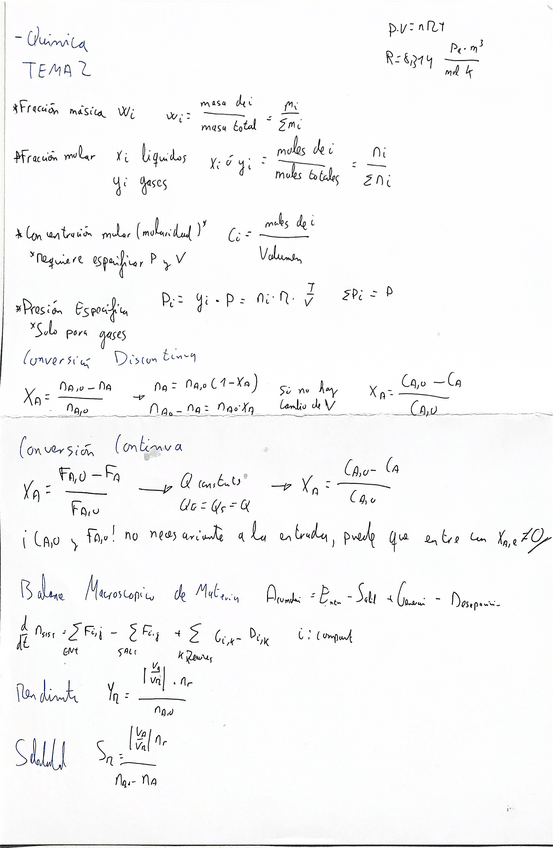 - Química
TEMA 2
P.V=nRT
R=8,314 Pa·m³ / mol K
*Fracción másica wi    wi = masa de i / masa total = mi / Σmi
*Fracción molar    xi líquidos    xi ó yi = moles de i / moles totales = ni / Σni
yi gases
*Concentración molar (molaridad)*    Ci = moles de i / Volumen
*Requiere especificar P y V
*Presión Específica    Pi = yi · P = ni · R · T/V    ΣPi = P
*Solo para gases
Conversión Discontinua
XA = (nA,0 - nA) / nA,0 → nA = nA,0 (1-XA)    Si no hay    XA = (CA,0 - CA) / CA,0
nA0 - nA = nA0·XA    cambio de V
Conversión Continua
XA = (FA,0 - FA) / FA,0 → Q constante → XA = (CA,0 - CA) / CA,0
QE = QS = Q
¡CA,0 y FA,0! no necesariamente a la entrada, puede que entre con XA,e ≠0
Balance Macroscopico de Materia    Acumulación = Entra - Sale + Generación - Desaparición
d/dt nsist = Σ Fi,j - Σ Fi,j + Σ Gi,k - Di,k    i: component
ENT    SALI
Rendimiento    YR = |νA/νR| · nr / nA,0
Selectividad    SR = |νA/νR| nr / (nA0 - nA)